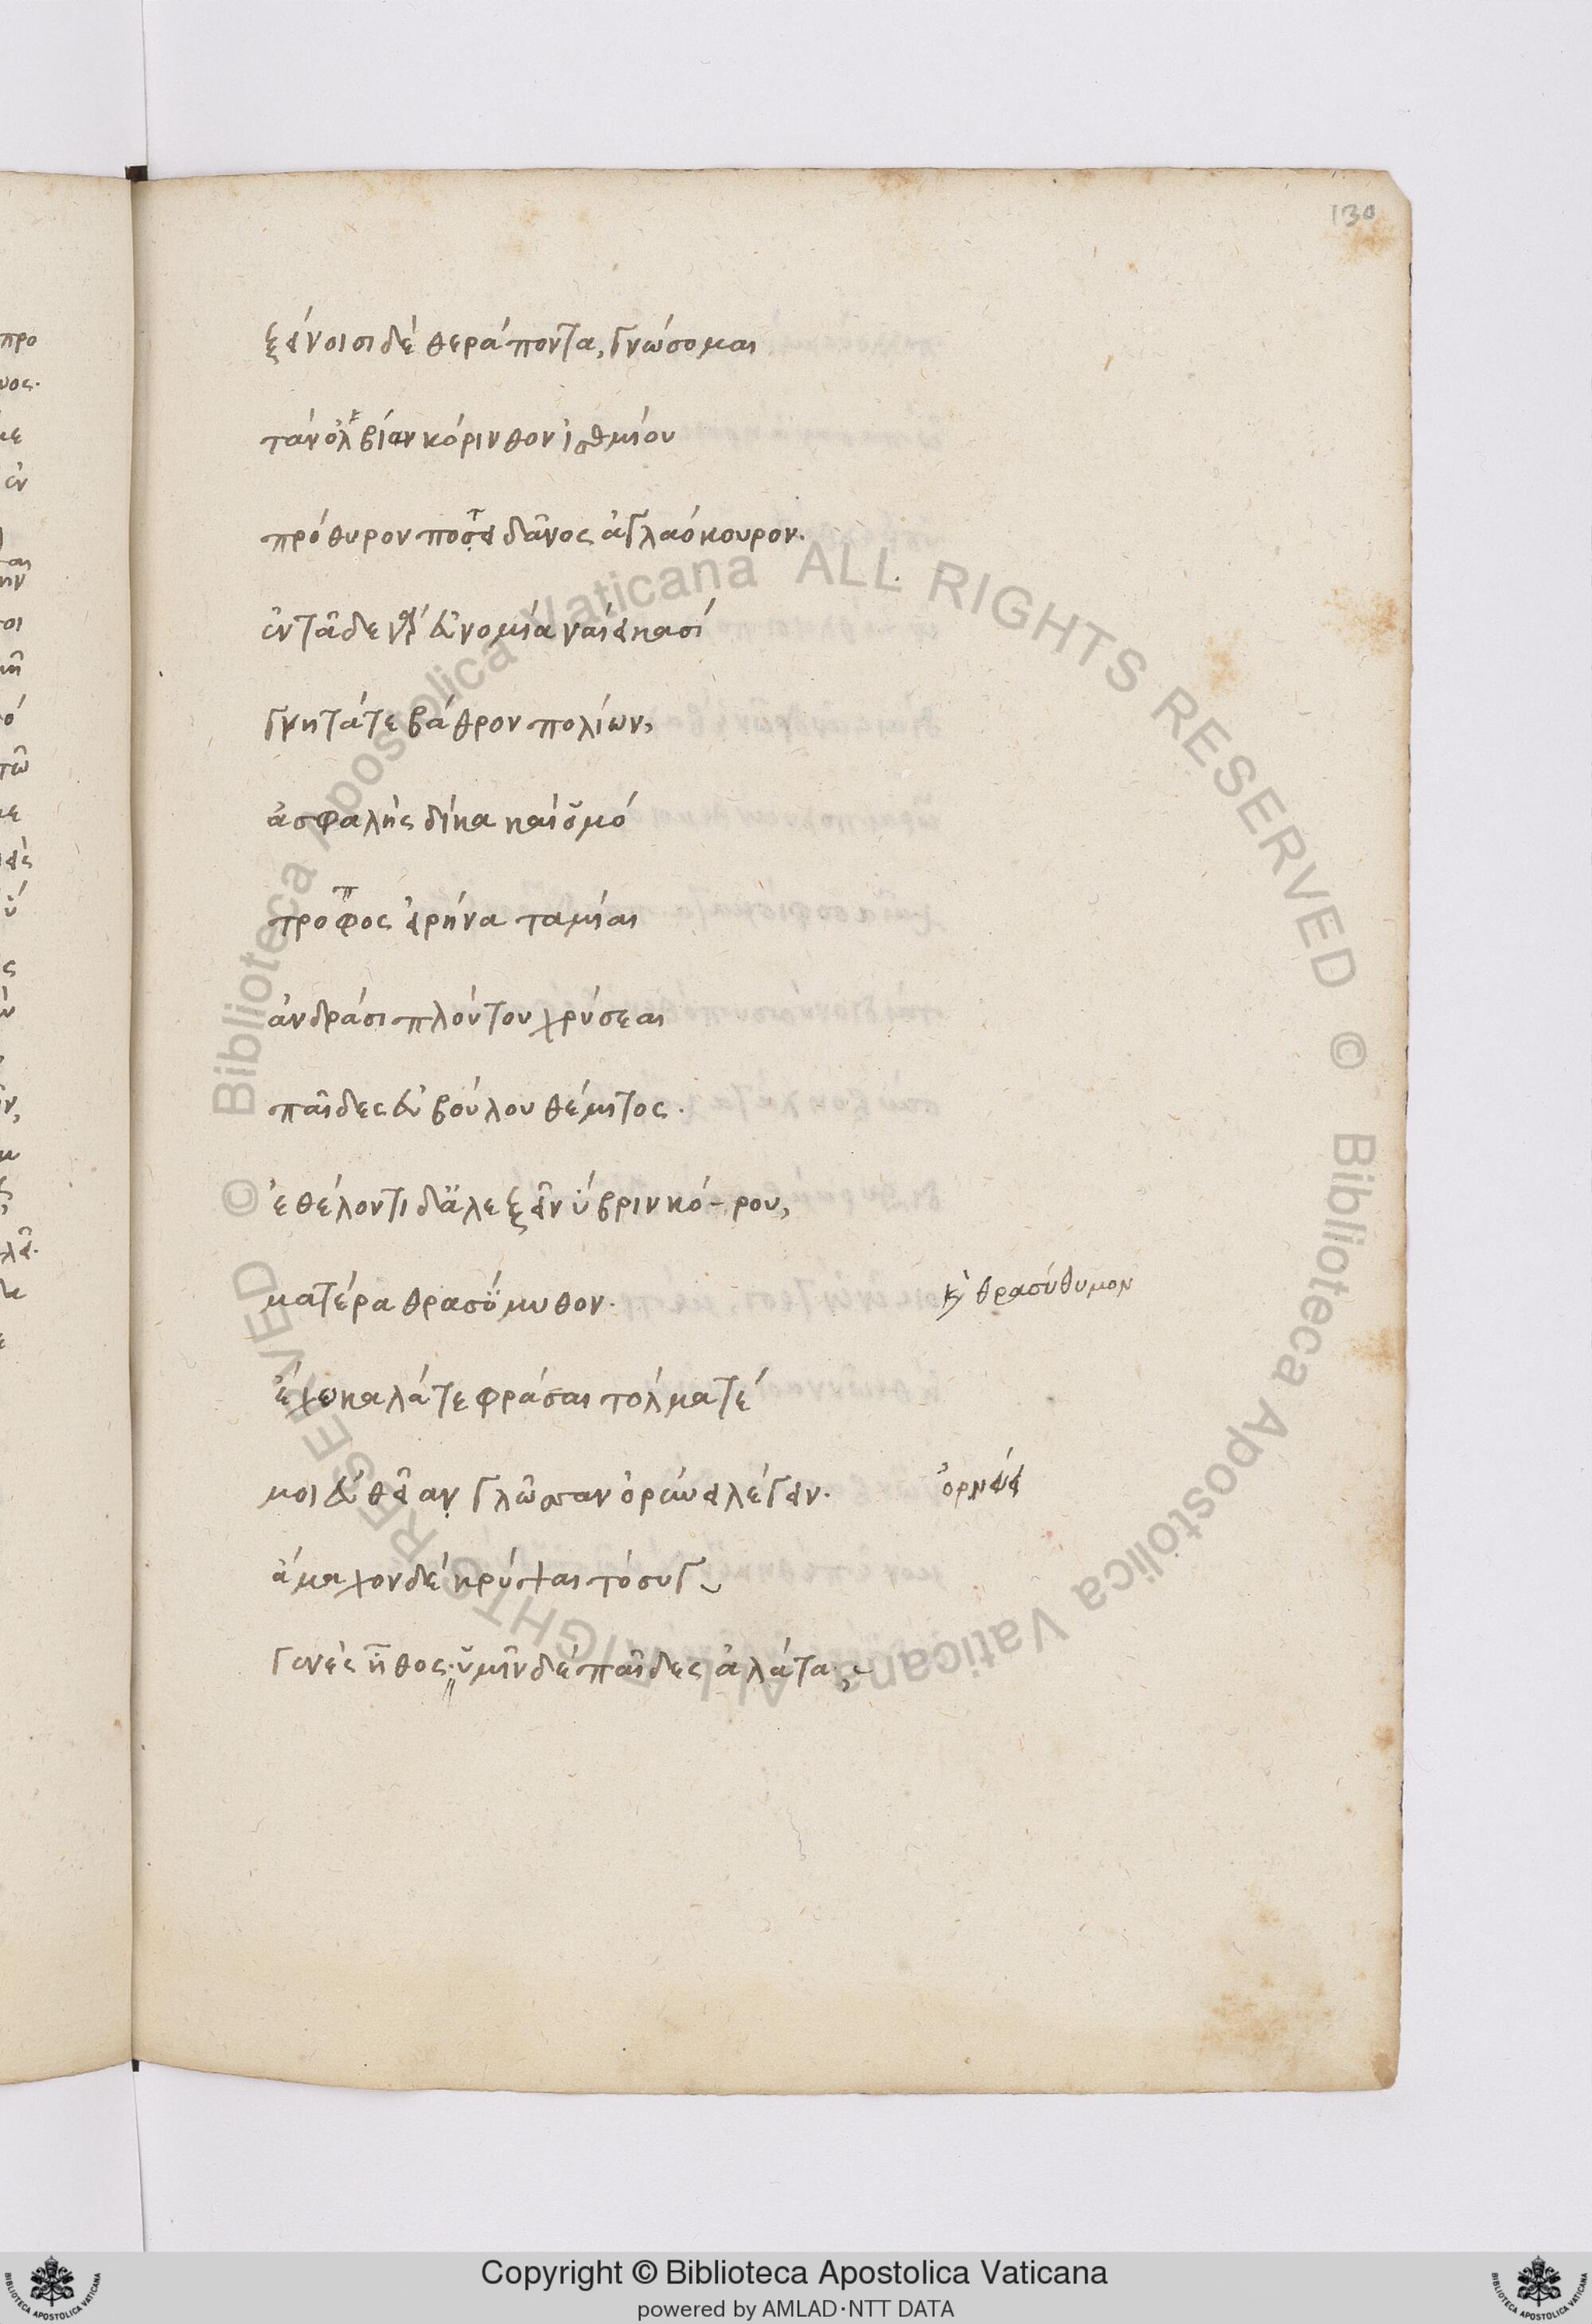 130
ξείνοισι δὲ θεράποντα, γνώσομαι
τὰν ὀλβίαν κόρινθον ἰσθμίου
πρόθυρον ποσειδᾶνος ἀγλαόκουρον.
ἐν τᾷδε γὰρ εὐνομία ναίει κασί
γνηταί τε βάθρον πολίων,
ἀσφαλὴς δίκα καὶ ὁμό
τροφος εἰρήνα ταμίαι
ἀνδράσι πλούτου χρύσεαι
παῖδες εὐβούλου θέμιτος.
ἐθέλοντι δ' ἀλεξεῖν ὕβριν κό-ρου,
ματέρα θρασύμυθον.
κὶ θρασύθυμον
ἔχω καλά τε φράσαι τόλμα τέ
μοι εὐθεῖαν γλῶσσαν ὀρνύει λέγειν.
ὀρνύει
ἄμαχον δὲ κρύψαι τὸ συγ
γενὲς ἦθος. ὔμμιν δὲ παῖδες ἀλάτα
προ
νος.
με
ἐν
© Biblioteca Apostolica Vaticana ALL RIGHTS RESERVED © Biblioteca Apostolica Vaticana ALL RIGHTS RESERVED
Copyright © Biblioteca Apostolica Vaticana
powered by AMLAD·NTT DATA
BIBLIOTECA APOSTOLICA VATICANA
BIBLIOTECA APOSTOLICA VATICANA